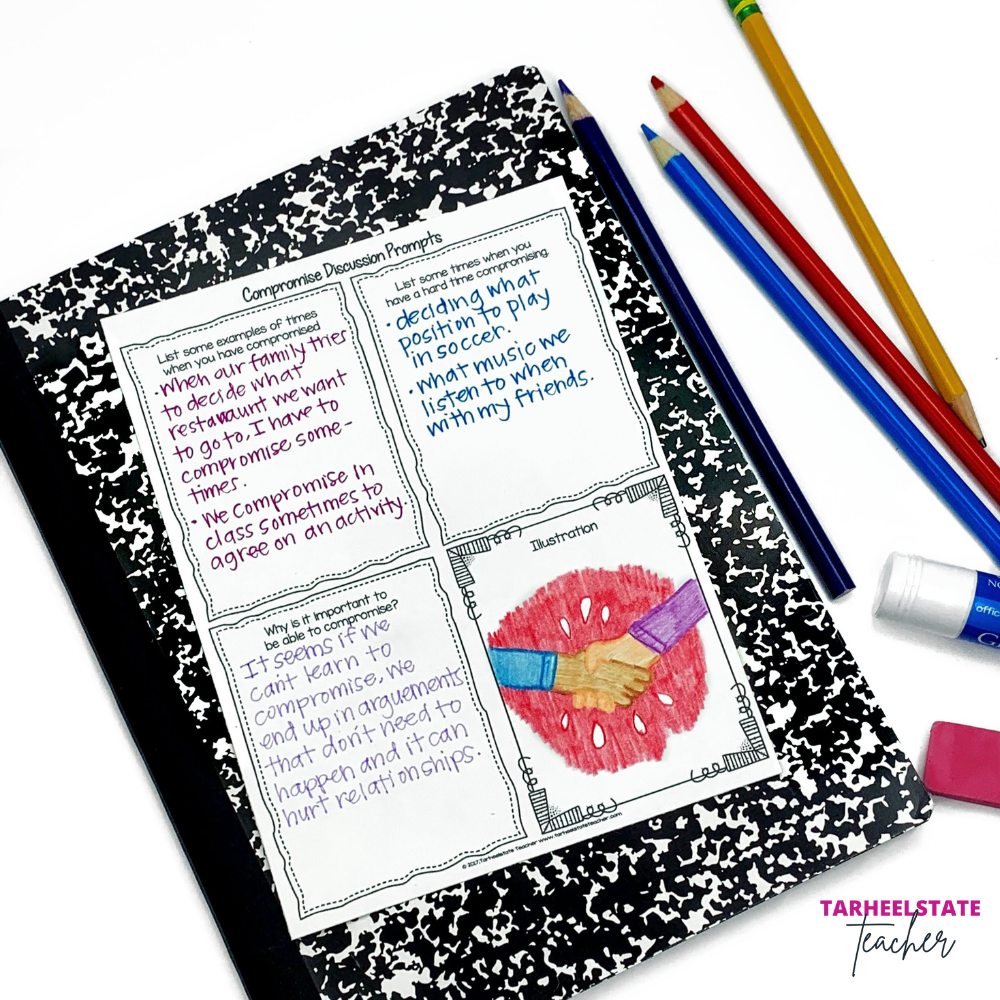 Compromise Discussion Prompts
List some examples of times
when you have compromised
• When our family tries
to decide what
restaraunt we want
to go to, I have to
compromise some-
times.
• We compromise in
class sometimes to
agree on an activity.
List some times when you
have a hard time compromising.
• deciding what
position to play
in soccer.
• what music we
listen to when
with my friends.
Why is it important to
be able to compromise?
It seems if we
cant learn to
compromise, we
end up in arguements
that don't need to
happen and it can
hurt relationships.
Illustration
© 2017, Tarheelstate Teacher www.tarheelstateteacher.com
TARHEELSTATE
Teacher